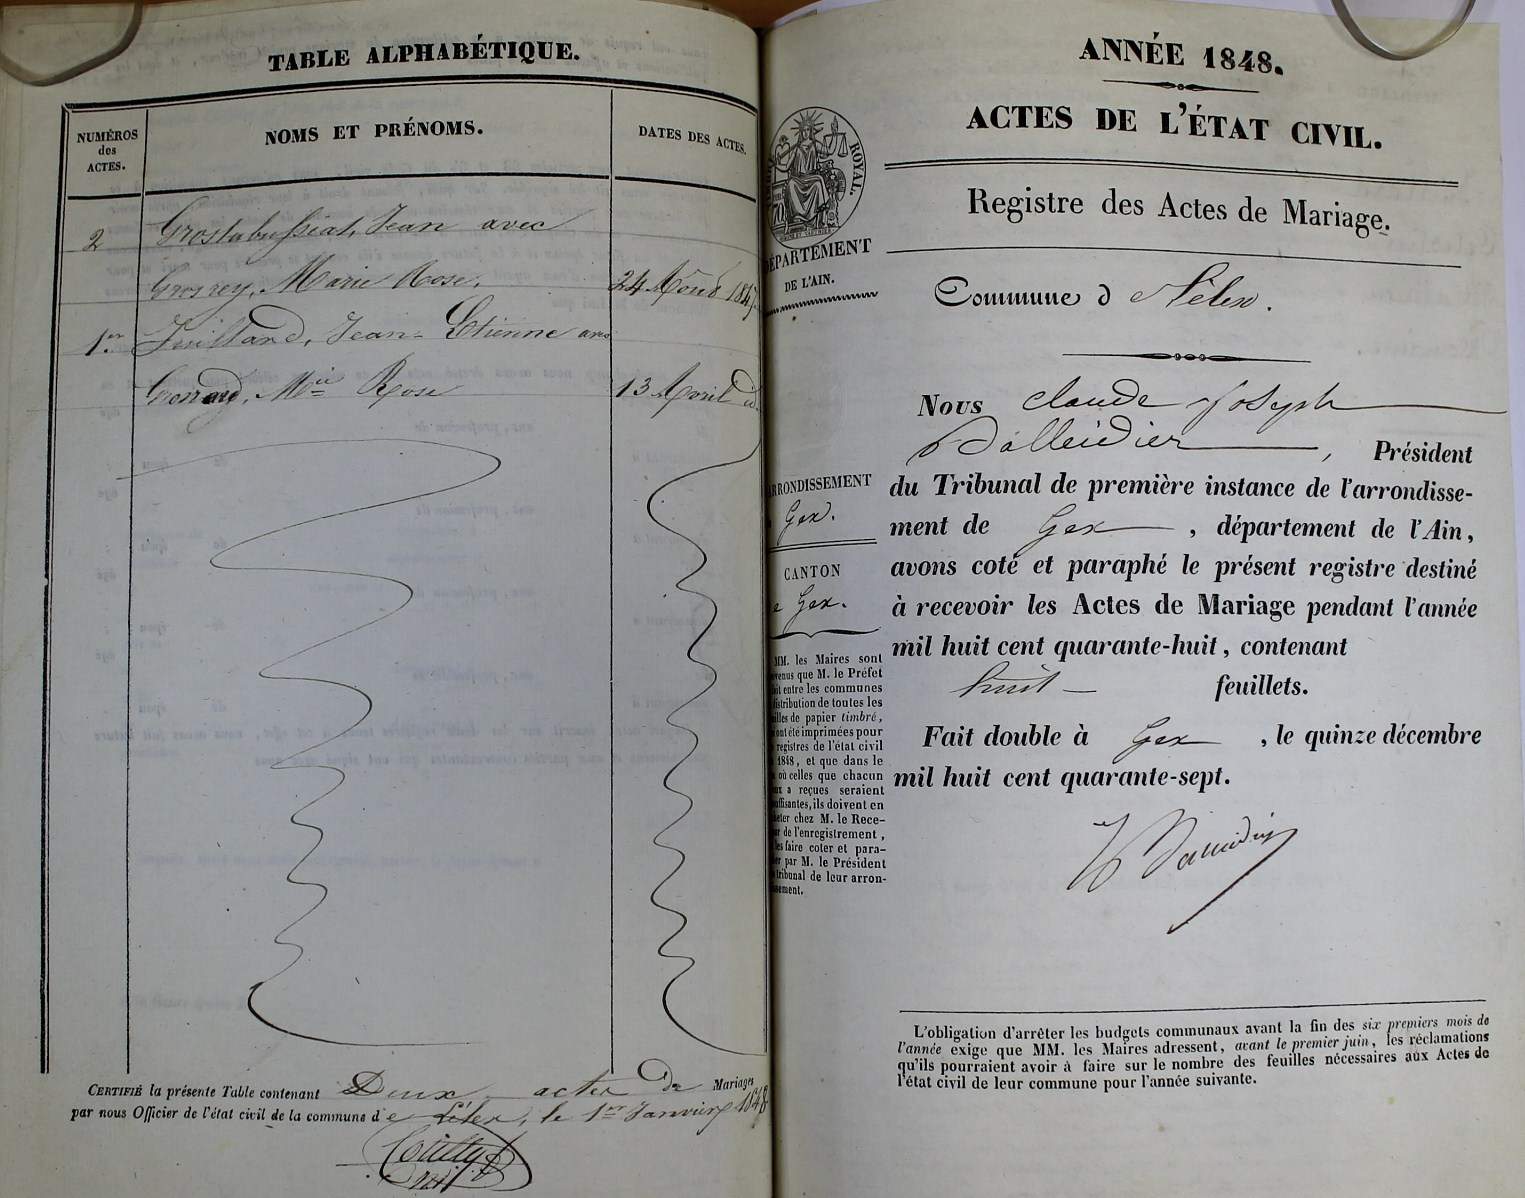 TABLE ALPHABÉTIQUE.
NUMÉROS
des
ACTES.
NOMS ET PRÉNOMS.
DATES DES ACTES.
2 Grostabussiat, Jean avec
Grosrey, Marie Rose, 24 Août 1847
1er Juilland, Jean-Etienne avec
Mie Rose 13 Avril id.
CERTIFIÉ la présente Table contenant Deux actes de Mariages
par nous Officier de l'état civil de la commune de Lélex, le 1er Janvier 1848
ANNÉE 1848.
ACTES DE L'ÉTAT CIVIL.
ROYAL.
Registre des Actes de Mariage.
DÉPARTEMENT
DE L'AIN.
Commune de Lélex.
Nous Claude Joseph
, Président
du Tribunal de première instance de l'arrondisse-
ment de Gex , département de l'Ain,
avons coté et paraphé le présent registre destiné
à recevoir les Actes de Mariage pendant l'année
mil huit cent quarante-huit, contenant
huit feuillets.
Fait double à Gex , le quinze décembre
mil huit cent quarante-sept.
ARRONDISSEMENT
Gex.
CANTON
e Gex.
MM. les Maires sont
venus que M. le Préfet
ait entre les communes
distribution de toutes les
illes de papier timbré,
i ont été imprimées pour
registres de l'état civil
1848, et que dans le
où celles que chacun
ux a reçues seraient
uffisantes, ils doivent en
heter chez M. le Rece-
ur de l'enregistrement,
les faire coter et para-
er par M. le Président
tribunal de leur arron-
ssement.
L'obligation d'arrêter les budgets communaux avant la fin des six premiers mois de
l'année exige que MM. les Maires adressent, avant le premier juin, les réclamations
qu'ils pourraient avoir à faire sur le nombre des feuilles nécessaires aux Actes de
l'état civil de leur commune pour l'année suivante.